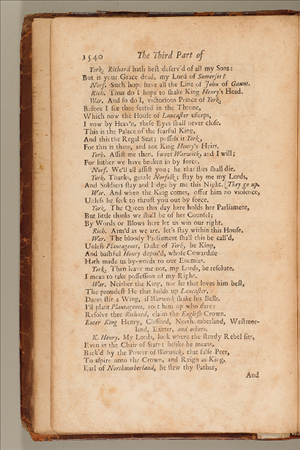 1540 The Third Part of
York. Richard hath best deserv'd of all my Sons:
But is your Grace dead, my Lord of Somerset?
Norf. Such hope have all the Line of John of Gaunt.
Rich. Thus do I hope to shake King Henry's Head.
War. And so do I, victorious Prince of York,
Before I see thee seated in the Throne,
Which now the House of Lancaster usurps,
I vow by Heav'n, these Eyes shall never close.
This is the Palace of the fearful King,
And this the Regal Seat; possess it York,
For this is thine, and not King Henry's Heirs.
York. Assist me then, sweet Warwick, and I will;
For hither we have broken in by force.
Norf. We'll all assist you; he that flies shall die.
York. Thanks, gentle Norfolk; stay by me my Lords,
And Soldiers stay and lodge by me this Night. [They go up.
War. And when the King comes, offer him no violence,
Unless he seek to thrust you out by force.
York. The Queen this day here holds her Parliament,
But little thinks we shall be of her Counsel;
By Words or Blows here let us win our right.
Rich. Arm'd as we are, let's stay within this House.
War. The bloody Parliament shall this be call'd,
Unless Plantagenet, Duke of York, be King,
And bashful Henry depos'd, whose Cowardise
Hath made us by-words to our Enemies.
York. Then leave me not, my Lords, be resolute,
I mean to take possession of my Right.
War. Neither the King, nor he that loves him best,
The proudest He that holds up Lancaster,
Dares stir a Wing, if Warwick shake his Bells.
I'll plant Plantagenet, root him up who dares:
Resolve thee Richard, claim the English Crown.
Enter King Henry, Clifford, Northumberland, Westmor-
land, Exeter, and others.
K. Henry. My Lords, look where the sturdy Rebel sits,
Even in the Chair of State; belike he means,
Back'd by the Power of Warwick, that false Peer,
To aspire unto the Crown, and Reign as King.
Earl of Northumberland, he slew thy Father,
And